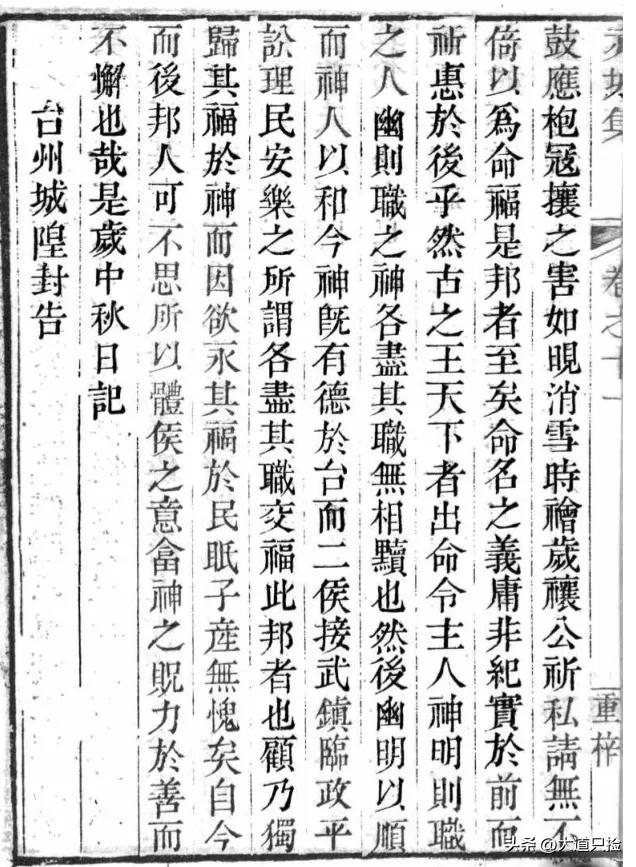 赤城集 卷之十一 重梓
鼓應枹冦攘之害如晛消雪時禬歲禳公祈私請無不
倚以爲命福是邦者至矣命名之義庸非紀實於前而
祈惠於後乎然古之王天下者出命令主人神明則職
之人幽則職之神各盡其職無相黷也然後幽明以順
而神人以和今神旣有德於台而二侯接武鎮臨政平
訟理民安樂之所謂各盡其職交福此邦者也顧乃獨
歸其福於神而因欲永其福於民眂子產無愧矣自今
而後邦人可不思所以體侯之意畣神之貺力於善而
不懈也哉是歲中秋日記
台州城隍封告
头条 @大道只淦